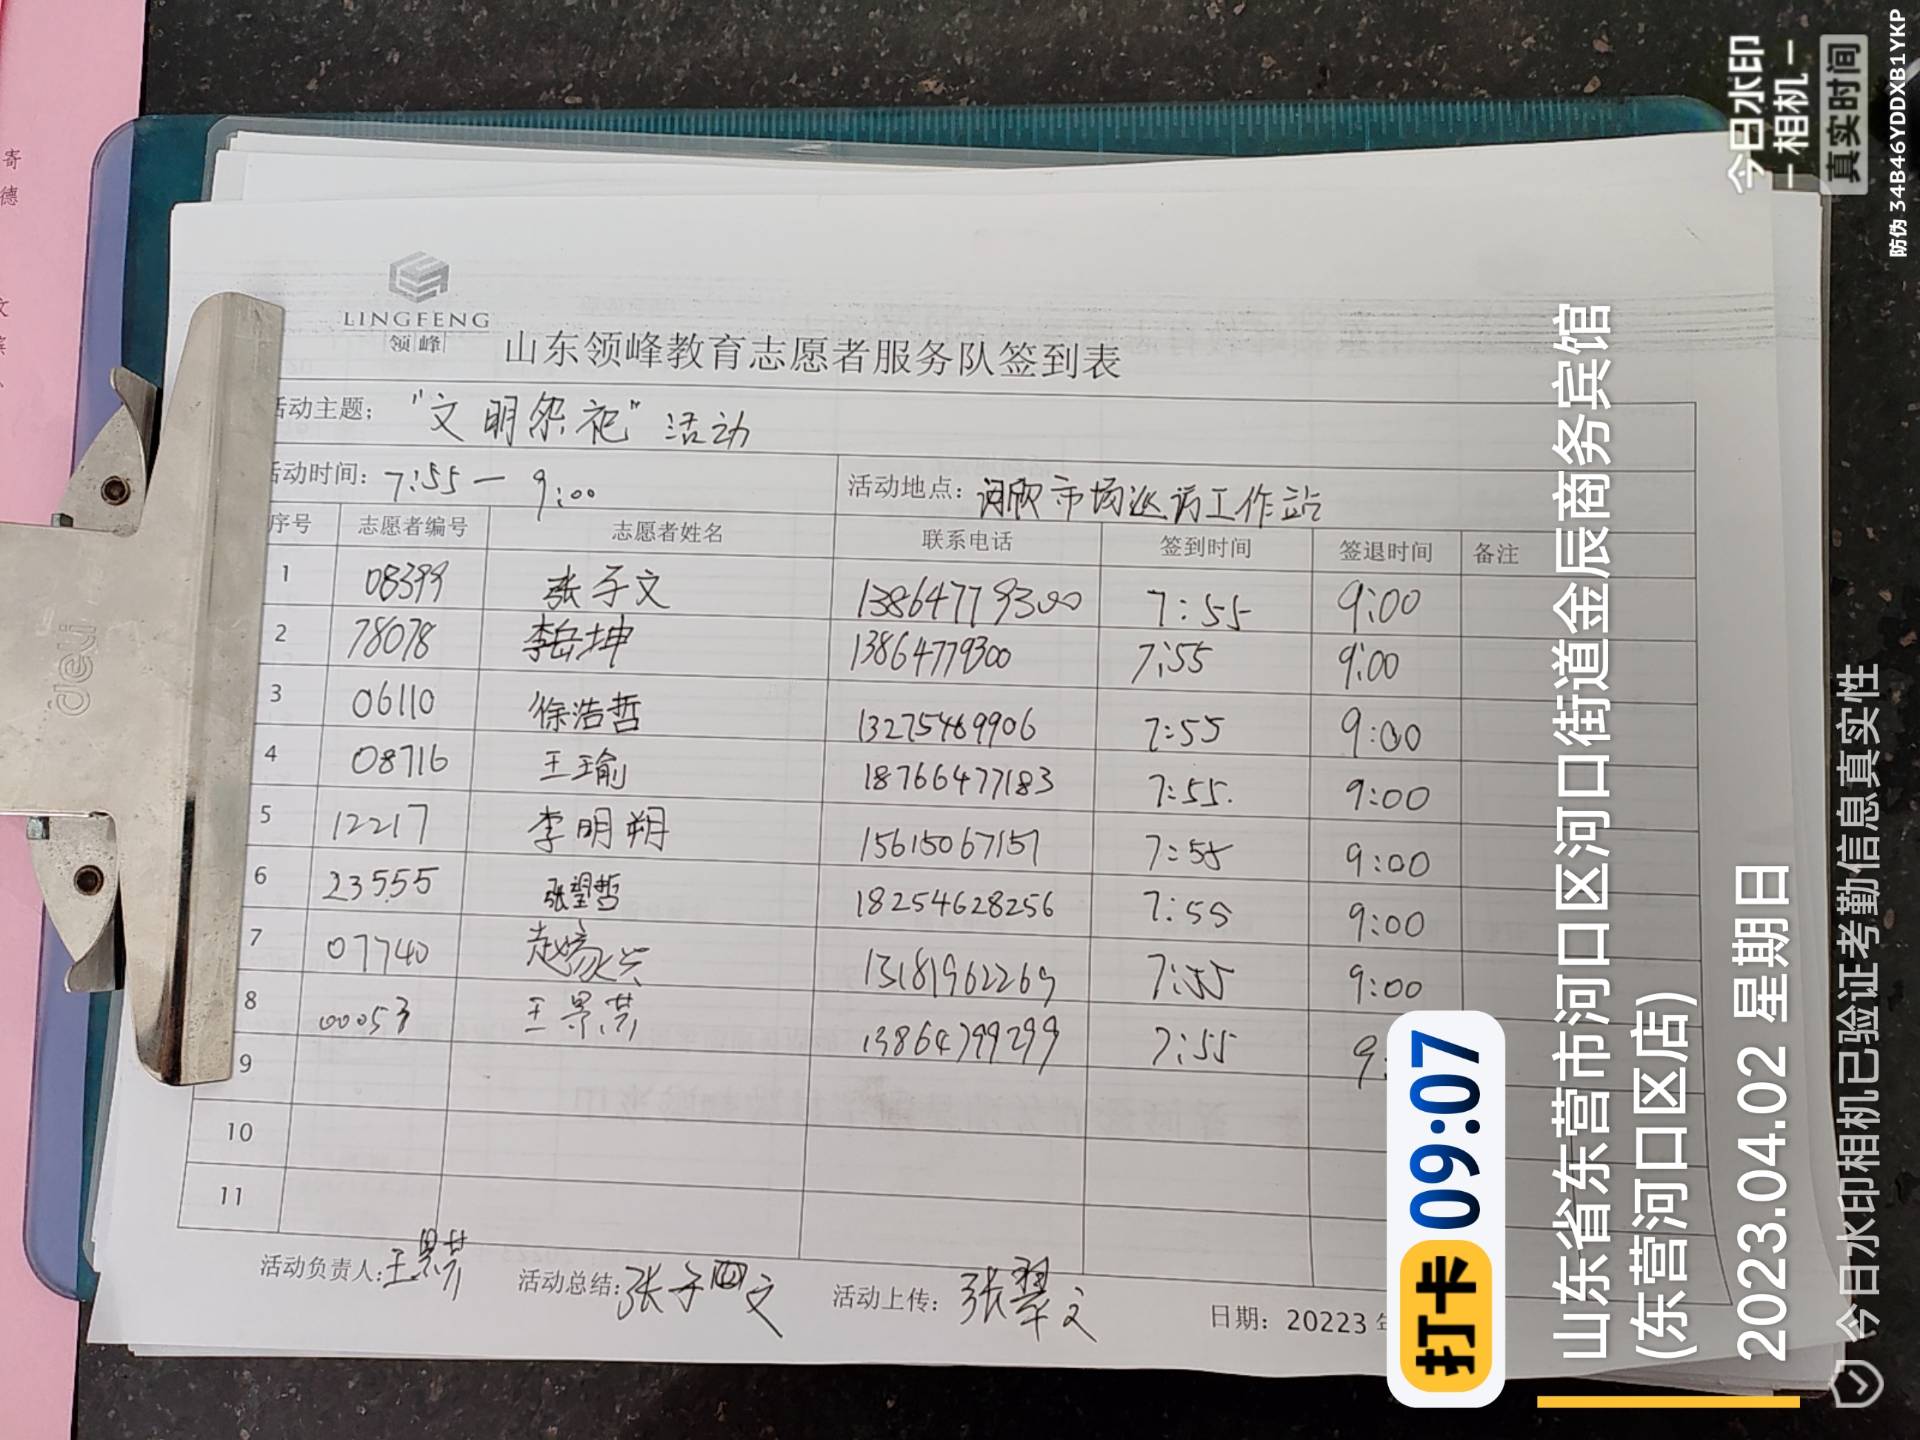 LINGFENG
领峰
山东领峰教育志愿者服务队签到表
活动主题; "文明祭祀"活动
活动时间: 7:55 — 9:00 活动地点: 市场巡访工作站
序号 志愿者编号 志愿者姓名 联系电话 签到时间 签退时间 备注
1 08399 张子文 13864779300 7:55 9:00
2 78078 李岳坤 13864779300 7:55 9:00
3 06110 徐浩哲 13275469906 7:55 9:00
4 08716 王瑜 18766477183 7:55. 9:00
5 12217 李明翔 15615067157 7:55 9:00
6 23555 张望哲 18254628256 7:55 9:00
7 07740 赵家兴 13181962269 7:55 9:00
8 00053 王景芸 13864799299 7:55 9:
9
10
11
活动负责人: 王景芸 活动总结: 张子文 活动上传: 张翠文 日期: 20223
deli
寄
德
文
打卡 09:07
山东省东营市河口区河口街道金辰商务宾馆
(东营河口区店)
2023.04.02 星期日
今日水印相机已验证考勤信息真实性
今日水印
相机
真实时间
防伪 34B46YDDXB1YKP